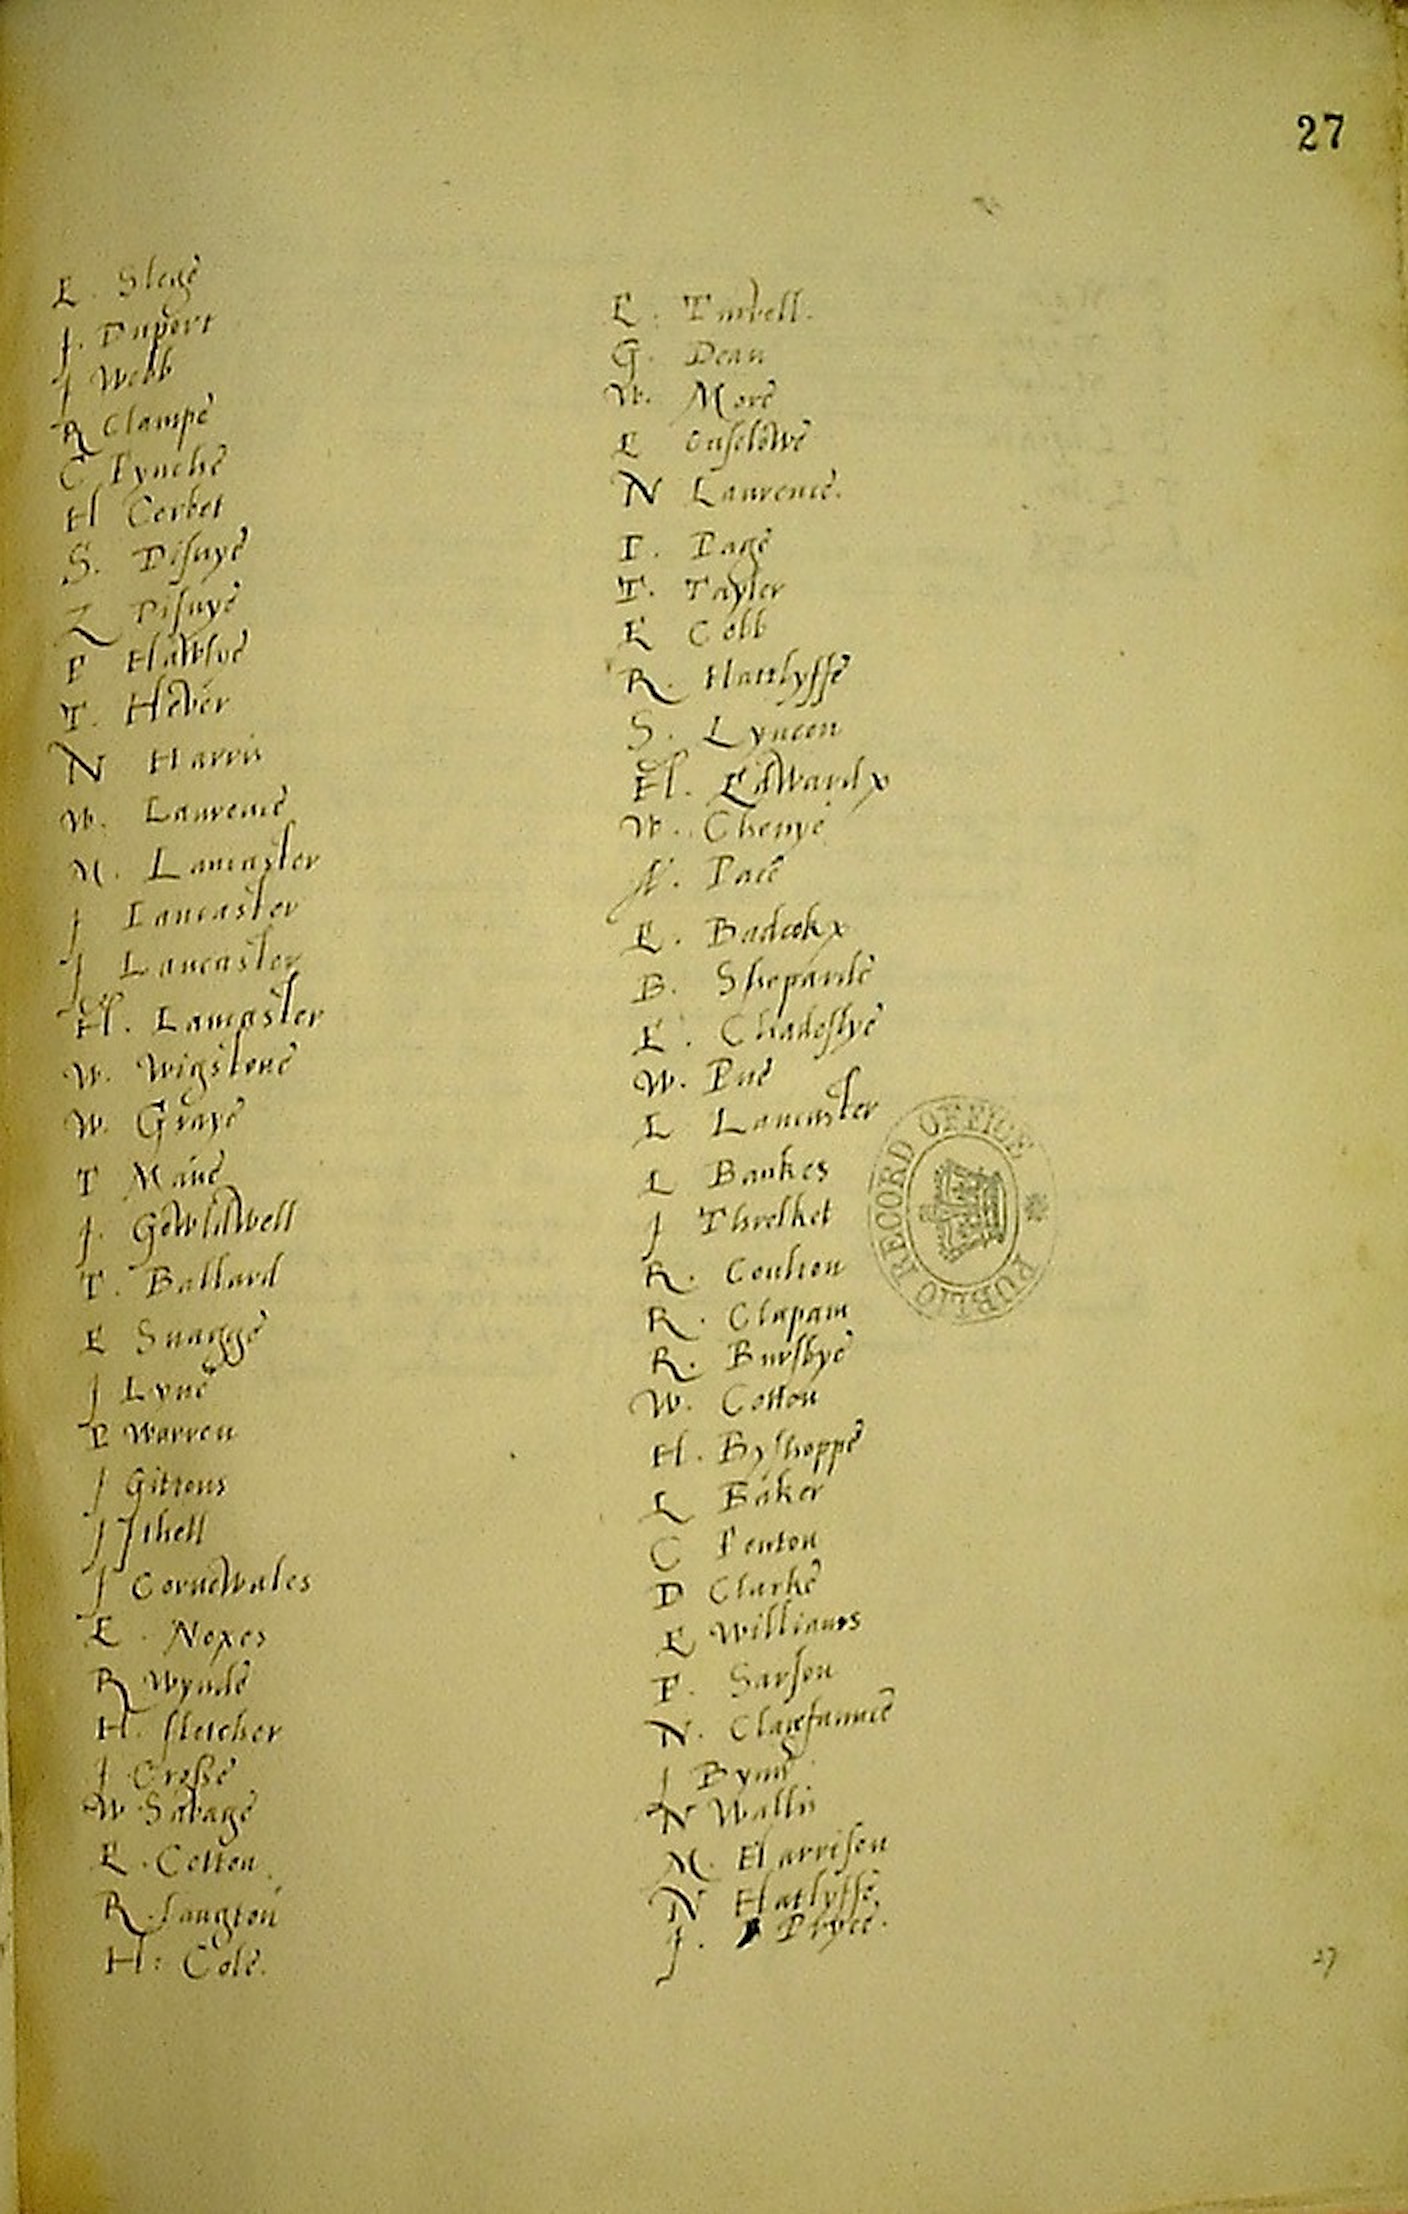 27
E. Slege
J. Duport
J Webb
R Clampe
C Fynche
H Corbet
S. Disnye
Z Disnye
F Hawtve
T. Hever
N Harris
W. Laurence
M. Lancaster
J Lancaster
J Lancaster
El. Lancaster
W. Wigstone
W. Graye
T Mane
J. Gowldwell
T. Ballard
E Snagge
J Lyne
E Warren
J Gittons
J Ithell
J Cornewales
E. Noxes
R Wynde
H. fletcher
J Crosse
W Savage
E. Cotton
R. Langton
H: Cole.
E. Tarvell.
G. Dean
W. More
E Onselowe
N Laurence.
T. Page
T. Tayler
E Cobb
R. Hattlyffe
S. Lyncon
El. Edward x
W. Chenye
N. Pace
E. Badcok x
B. Sheparde
E. Chadeslye
W. Pue
L Lancaster
L Bankes
J Threlket
R. Coulton
R. Clapam
R. Bursbye
W. Cotton
H. Byshoppe
L Baker
C Fenton
D Clarke
E Williams
F. Sarson
N.
J Bynd
N Wallis
M. Harrison
N Hatlyffe.
J. Pryce.
27
PUBLIC RECORD OFFICE